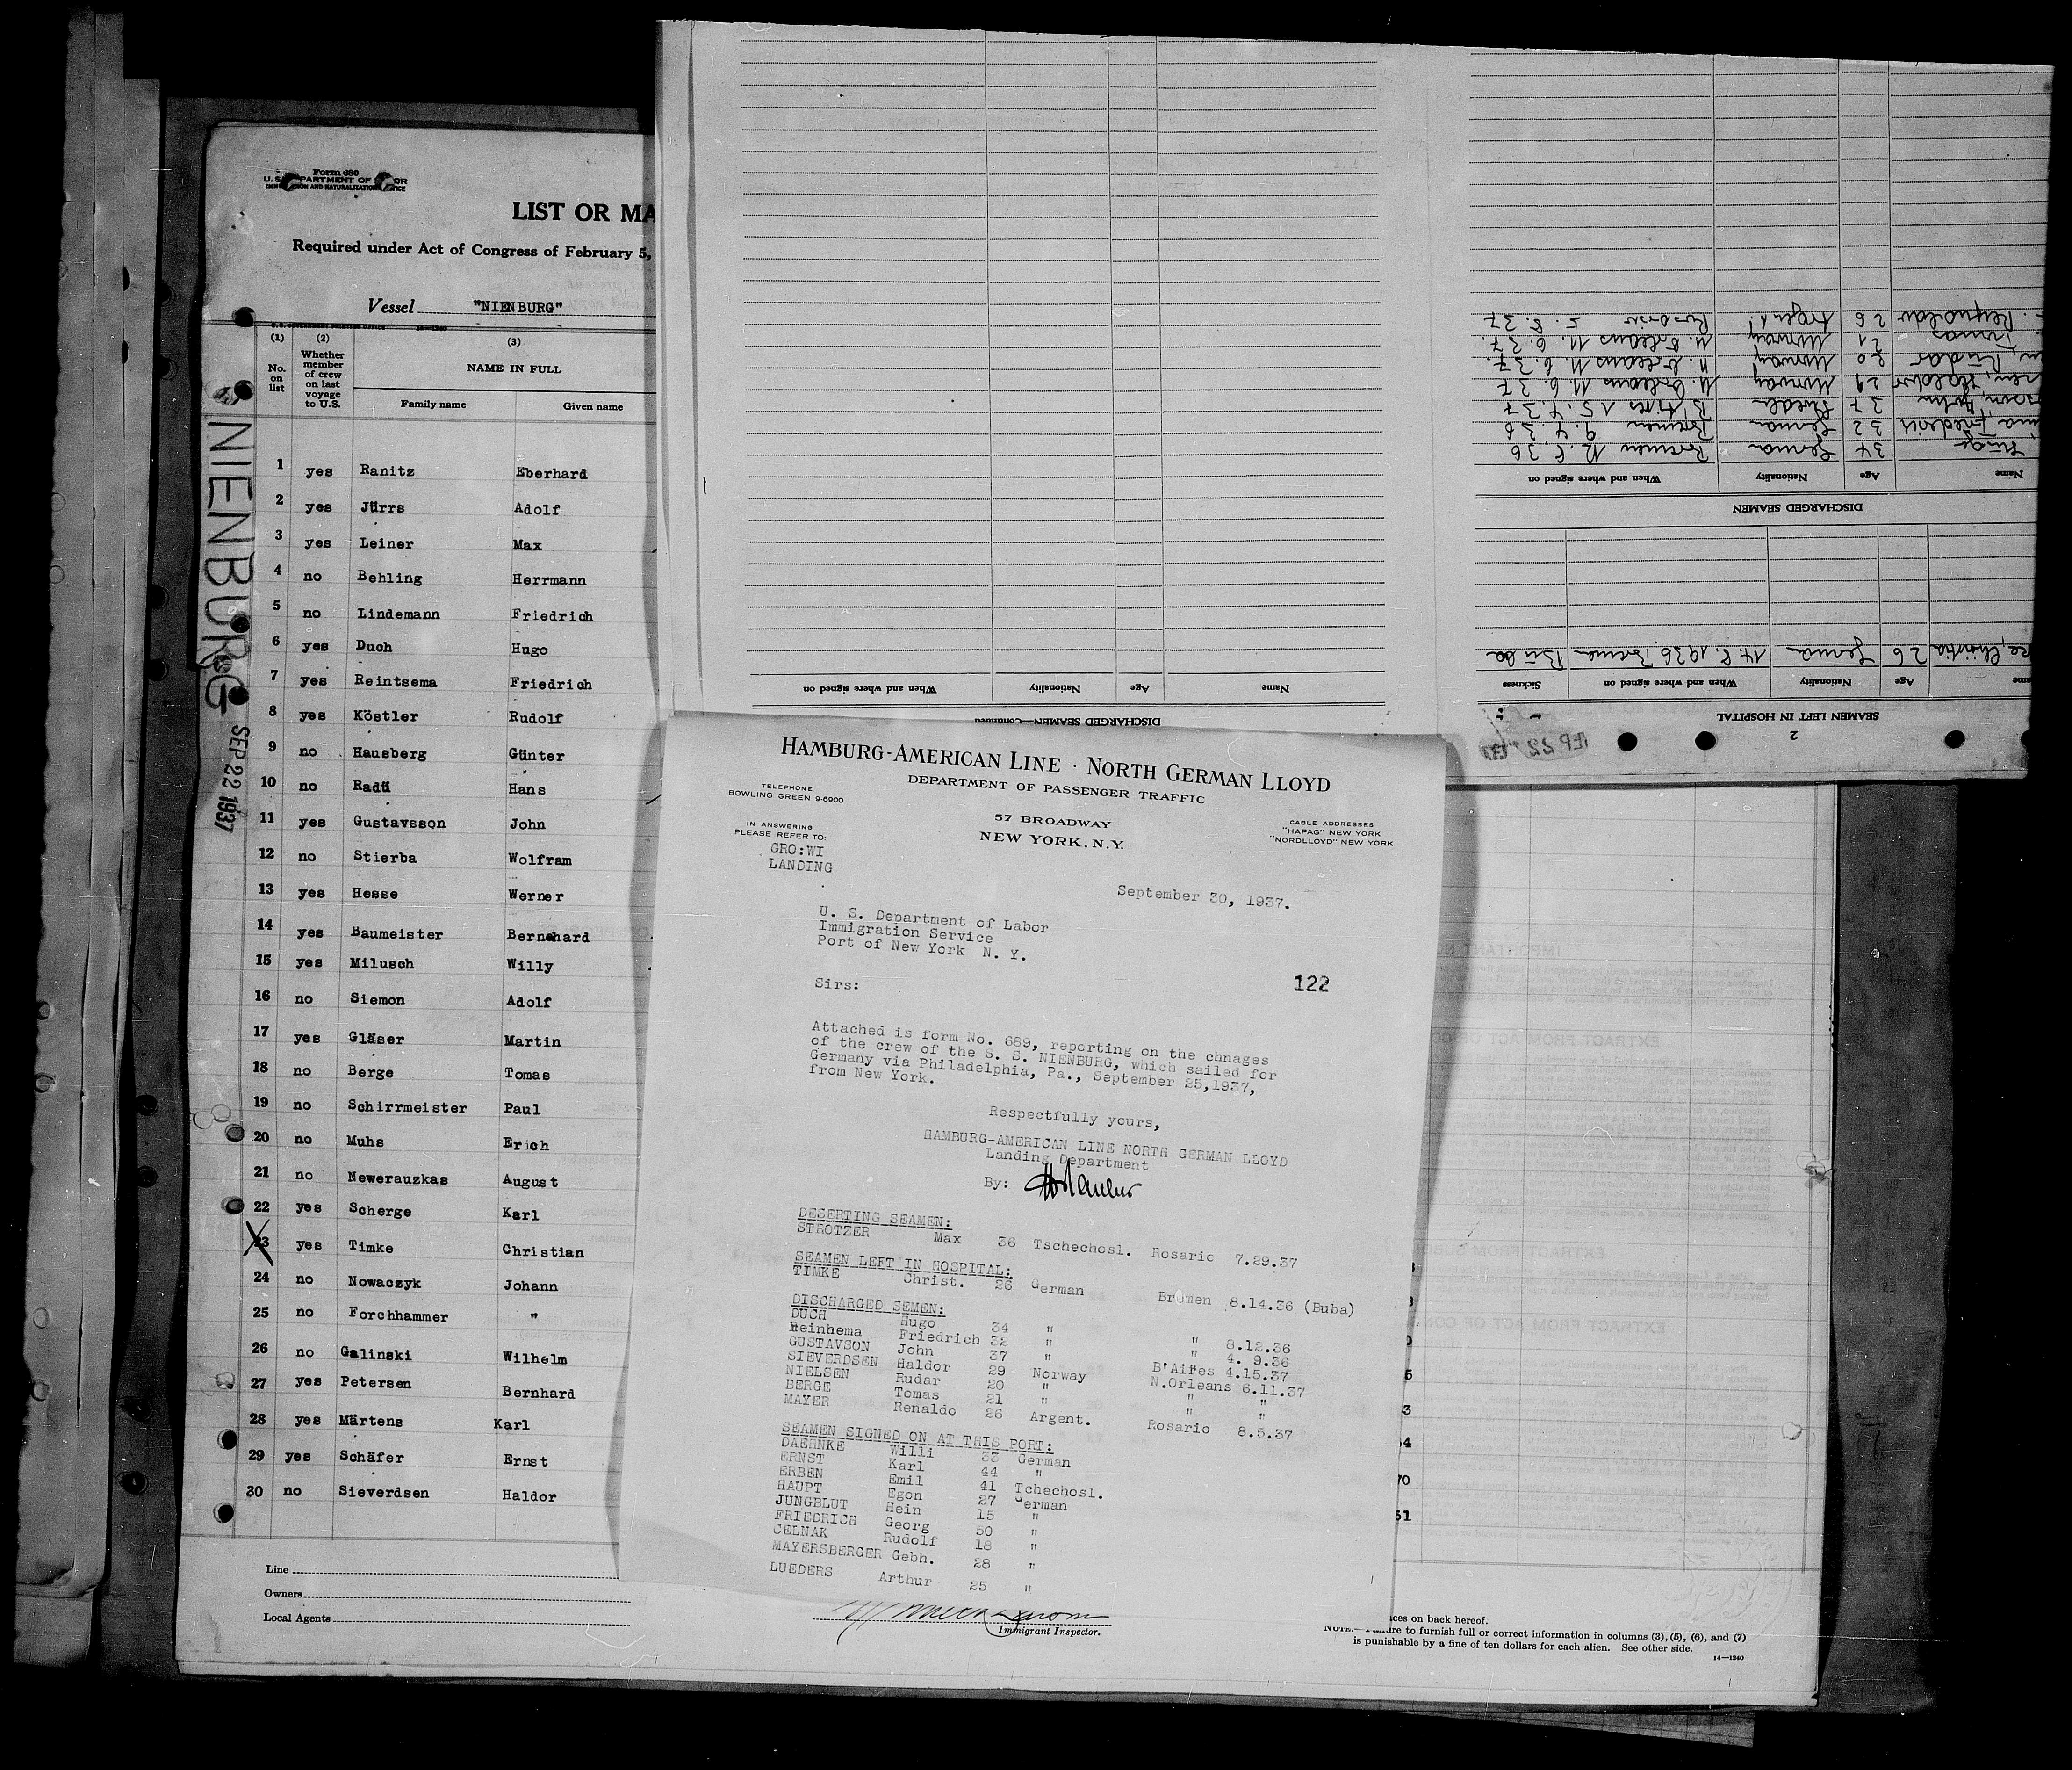 Form 680
U. S. DEPARTMENT OF LABOR
IMMIGRATION AND NATURALIZATION SERVICE
LIST OR MA
Required under Act of Congress of February 5,
Vessel "NIENBURG"
(1) (2) (3)
No. on list
Whether member of crew on last voyage to U.S.
NAME IN FULL
Family name Given name
1 yes Ranitz Eberhard
2 yes Jürrs Adolf
3 yes Leiner Max
4 no Behling Herrmann
5 no Lindemann Friedrich
6 yes Duch Hugo
7 yes Reintsema Friedrich
8 yes Köstler Rudolf
9 no Hausberg Günter
10 no Radü Hans
11 yes Gustavsson John
12 no Stierba Wolfram
13 yes Hesse Werner
14 yes Baumeister Bernhard
15 yes Milusch Willy
16 no Siemon Adolf
17 yes Gläser Martin
18 no Berge Tomas
19 no Schirrmeister Paul
20 no Muhs Erich
21 no Newerauzkas August
22 yes Scherge Karl
23 yes Timke Christian
24 no Nowaczyk Johann
25 no Forchhammer "
26 no Galinski Wilhelm
27 yes Petersen Bernhard
28 yes Märtens Karl
29 yes Schäfer Ernst
30 no Sieverdsen Haldor
Line
Owners
Local Agents
NIENBURG
SEP 22 1937
2
SEAMEN LEFT IN HOSPITAL
Age Nationality When and where signed on Sickness
26 German 14.8.1936 Bremen Buba
DISCHARGED SEAMEN
Name Age Nationality When and where signed on
34 German Bremen 12.8.36
Friedrich 32 German Bremen 9.4.36
John 37 B'Aires 15.4.37
Haldor 29 Norway N. Orleans 11.6.37
Rudar 20 Norway N. Orleans 11.6.37.
Tomas 21 Norway N. Orleans 11.6.37.
Reynoldo 26 Argent. Rosario 5.8.37
DISCHARGED SEAMEN—Continued
Name Age Nationality When and where signed on
HAMBURG-AMERICAN LINE · NORTH GERMAN LLOYD
DEPARTMENT OF PASSENGER TRAFFIC
TELEPHONE
BOWLING GREEN 9-6900
57 BROADWAY
NEW YORK, N.Y.
CABLE ADDRESSES
"HAPAG" NEW YORK
"NORDLLOYD" NEW YORK
IN ANSWERING
PLEASE REFER TO:
GRO:WI
LANDING
September 30, 1937.
U. S. Department of Labor
Immigration Service
Port of New York N. Y.
122
Sirs:
Attached is form No. 689, reporting on the chnages
of the crew of the S. S. NIENBURG, which sailed for
Germany via Philadelphia, Pa., September 25,1937,
from New York.
Respectfully yours,
HAMBURG-AMERICAN LINE NORTH GERMAN LLOYD
Landing Department
By:
DESERTING SEAMEN:
STROTZER Max 36 Tschechosl. Rosario 7.29.37
SEAMEN LEFT IN HOSPITAL:
TIMKE Christ. 26 German Bremen 8.14.36 (Buba)
DISCHARGED SEMEN:
DUCH Hugo 34 " " 8.12.36
Reinhema Friedrich 32 " " 4. 9.36
GUSTAVSON John 37 " B'Aires 4.15.37
SIEVERDSEN Haldor 29 Norway N.Orleans 6.11.37
NIELSEN Rudar 20 " " "
BERGE Tomas 21 " " "
MAYER Renaldo 26 Argent. Rosario 8.5.37
SEAMEN SIGNED ON AT THIS PORT:
DAEHNKE Willi 33 German
ERNST Karl 44 "
ERBEN Emil 41 Tchechosl.
HAUPT Egon 27 German
JUNGBLUT Hein 15 "
FRIEDRICH Georg 50 "
CELNAK Rudolf 18 "
MAYERSBERGER Gebh. 28 "
LUEDERS Arthur 25 "
Immigrant Inspector.
ces on back hereof.
NOTE.—Failure to furnish full or correct information in columns (3), (5), (6), and (7)
is punishable by a fine of ten dollars for each alien. See other side.
14—1240